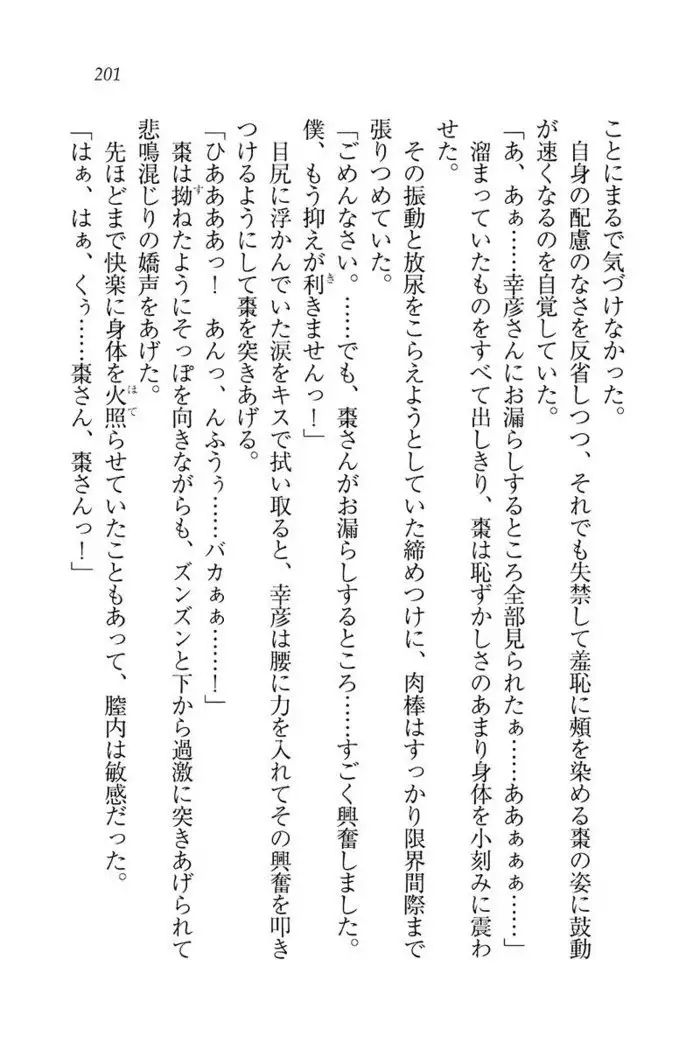 201
ことにまるで気づけなかった。
自身の配慮のなさを反省しつつ、それでも失禁して羞恥に頰を染める棗の姿に鼓動
が速くなるのを自覚していた。
「あ、あぁ……幸彦さんにお漏らしするところ全部見られたぁ……ああぁぁぁ……」
溜まっていたものをすべて出しきり、棗は恥ずかしさのあまり身体を小刻みに震わ
せた。
その振動と放尿をこらえようとしていた締めつけに、肉棒はすっかり限界間際まで
張りつめていた。
「ごめんなさい。……でも、棗さんがお漏らしするところ……すごく興奮しました。
僕、もう抑えが利きませんっ！」
目尻に浮かんでいた涙をキスで拭い取ると、幸彦は腰に力を入れてその興奮を叩き
つけるようにして棗を突きあげる。
「ひああああっ！　あんっ、んふうぅ……バカぁぁ……！」
棗は拗ねたようにそっぽを向きながらも、ズンズンと下から過激に突きあげられて
悲鳴混じりの嬌声をあげた。
先ほどまで快楽に身体を火照らせていたこともあって、膣内は敏感だった。
「はぁ、はぁ、くぅ……棗さん、棗さんっ！」